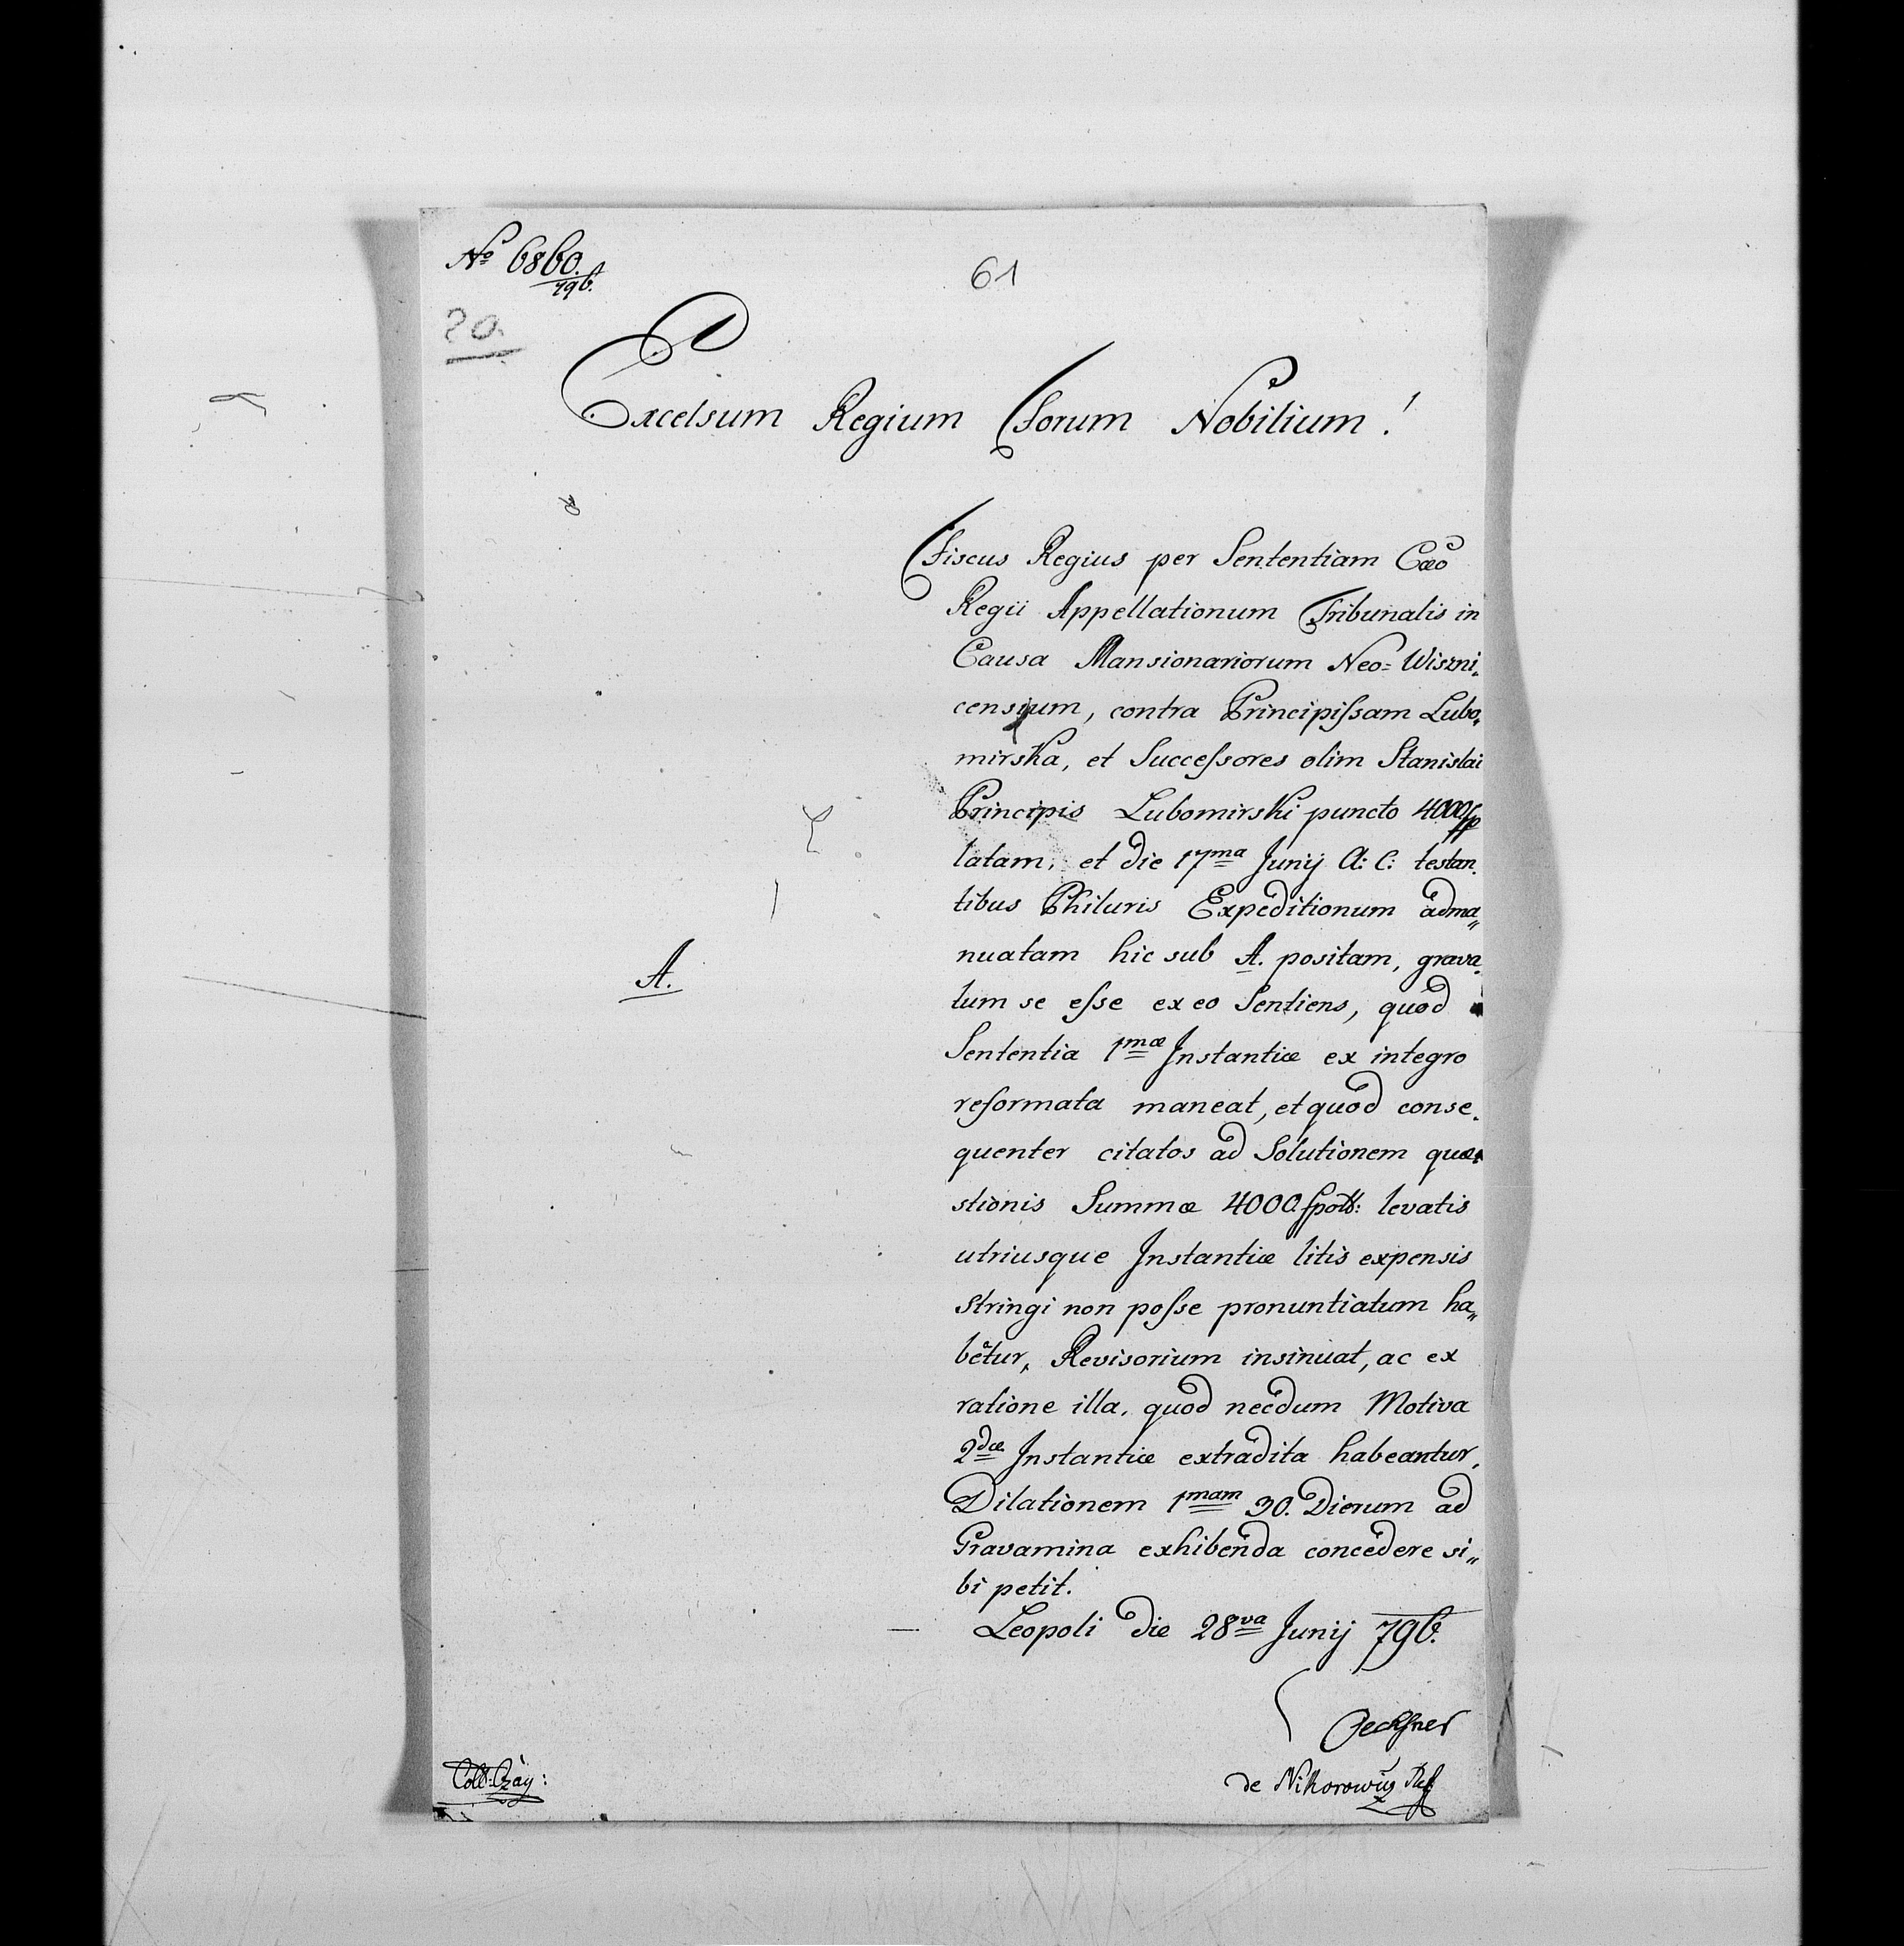 No 6860.
796.
61
20.
Excelsum Regium Forum Nobilium!
Fiscus Regius per Sententiam Cæo
Regii Appellationum Tribunalis in
Causa Mansionariorum Neo=Wiszni„
censium, contra Principissam Lubo„
mirska, et Successores olim Stanislai
Principis Lubomirski puncto 4000 fp
latam, et die 17ma Junij A: C: testan„
tibus Philuris Expeditionum adma„
nuatam hic sub A. positam, grava„
A.
tum se esse ex eo Sentiens, quod
Sententia 1mæ Instantiæ ex integro
reformata maneat, et quod conse„
quenter citatos ad Solutionem quæ„
stionis Summæ 4000 fpoll: levatis
utriusque Instantiæ litis expensis
stringi non posse pronuntiatum ha„
betur, Revisorium insinuat, ac ex
ratione illa, quod necdum Motiva
2dæ Instantiæ extradita habeantur,
Dilationem 1mam 30. Dierum ad
Gravamina exhibenda concedere si„
bi petit.
Leopoli die 28va Junij 796.
de Nikorowicz
Coll: